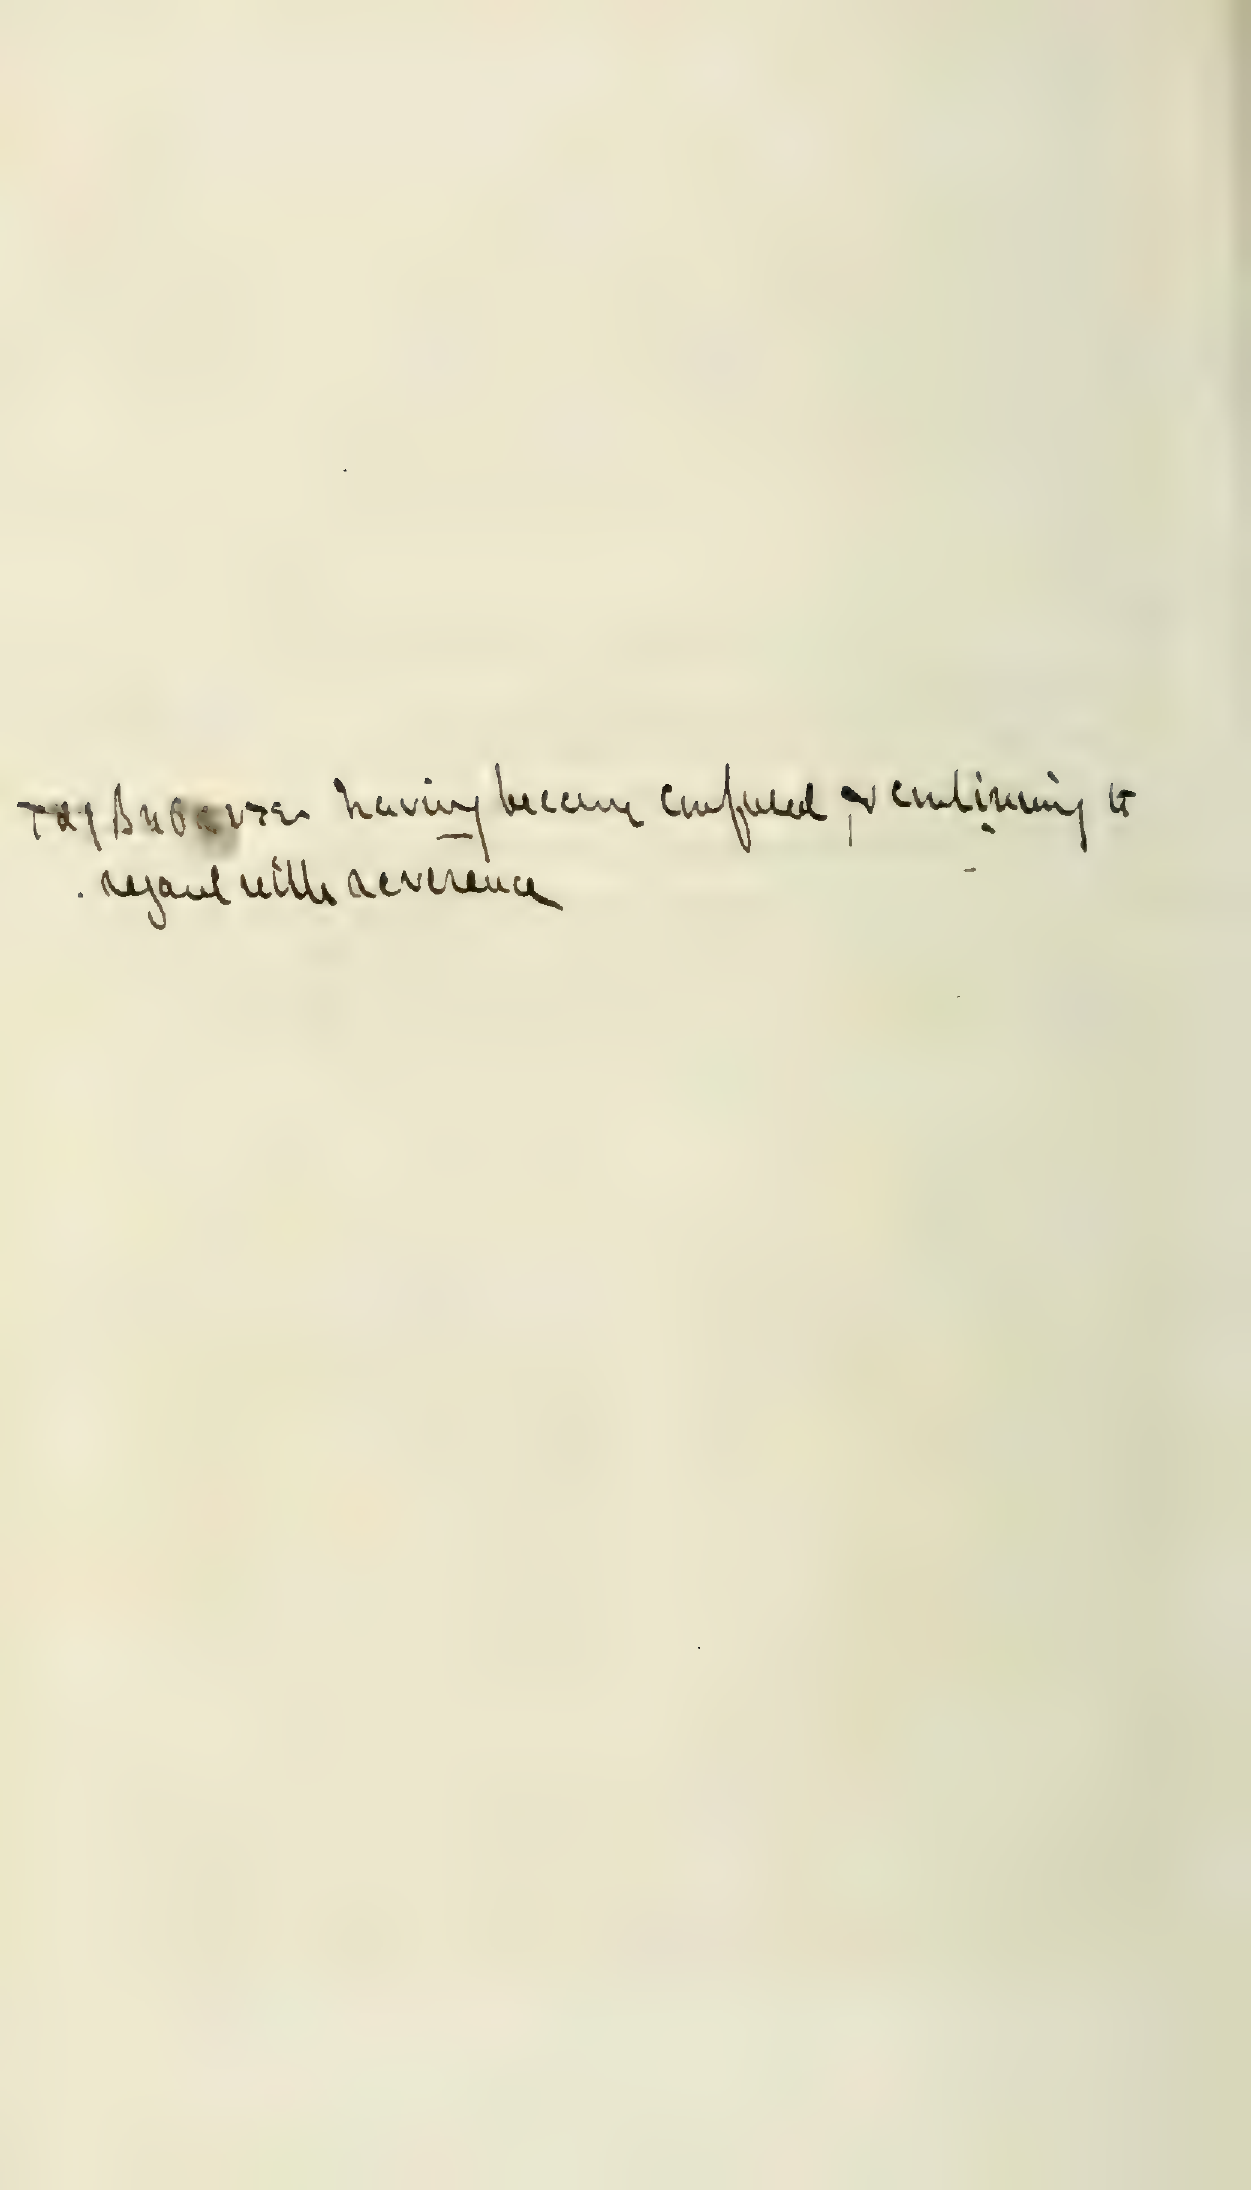 having become confused & continuing to
regard with reverence